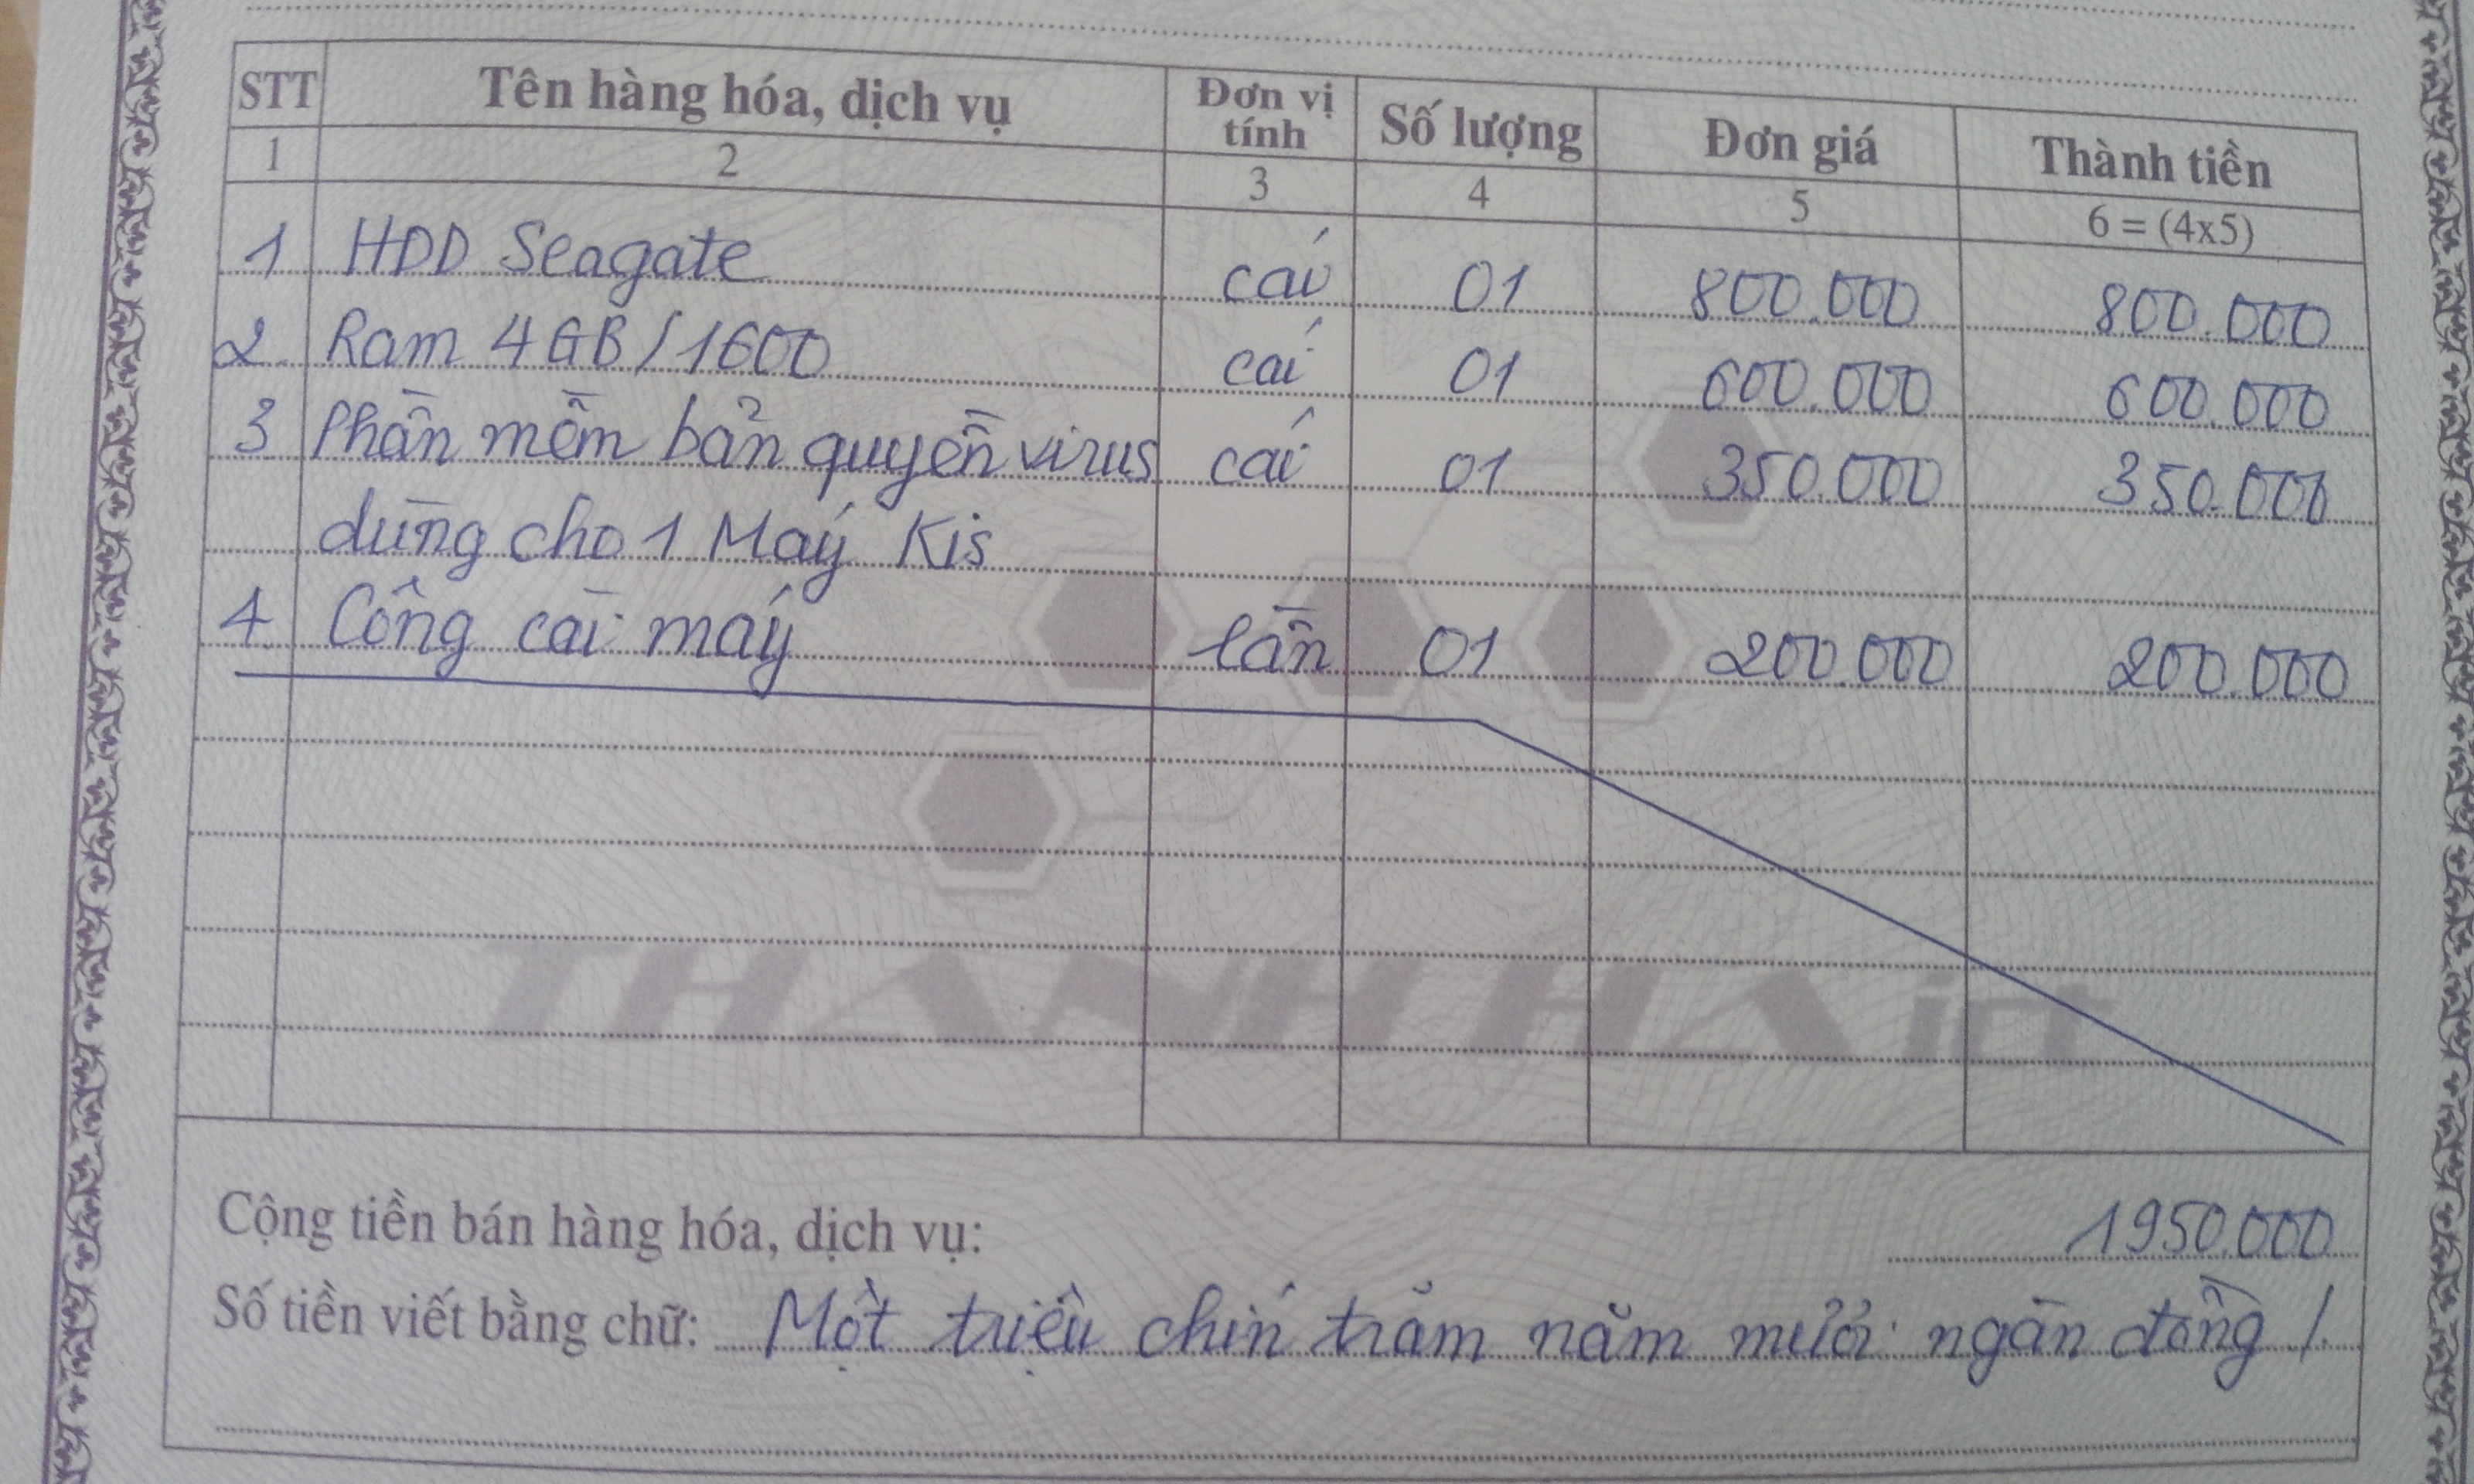 STT Tên hàng hóa, dịch vụ Đơn vị tính Số lượng Đơn giá Thành tiền
1 2 3 4 5 6 = (4x5)
1 HDD Seagate cái 01 800.000 800.000
2 Ram 4GB/1600 cái 01 600.000 600.000
3 Phần mềm bản quyền virus cái 01 350.000 350.000
dùng cho 1 Máy Kis
4 Công cài máy lần 01 200.000 200.000
THANH HA ict
Cộng tiền bán hàng hóa, dịch vụ: 1950.000
Số tiền viết bằng chữ: Một triệu chín trăm năm mươi ngàn đồng /.